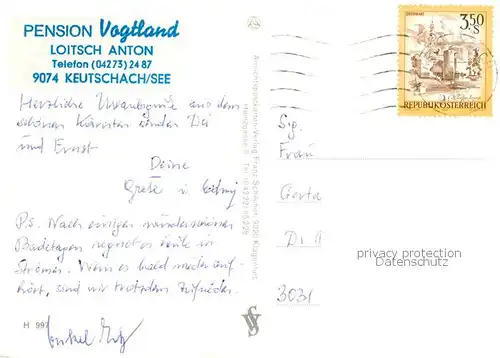 PENSION Vogtland
LOITSCH ANTON
Telefon (04273) 24 87
9074 KEUTSCHACH/SEE
Herzliche Urlaubsgrüße aus dem
schönen Kärnten senden Dir
und Ernst
Deine
Grete u.
P.S. Nach einigen wunderschönen
Badetagen regnet es heute in
Strömen. Wenn es bald wieder auf-
hört, sind wir trotzdem zufrieden.
H 997
Ansichtskarten-Verlag Franz Schilcher, 9020 Klagenfurt
3.50 S
REPUBLIK ÖSTERREICH
Sig.
Frau
Gerta
3031
privacy protection
Datenschutz